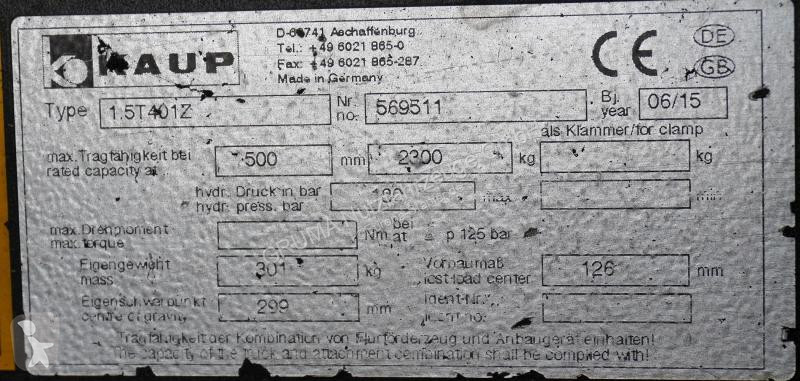 KAUP
D-63741 Aschaffenburg
Tel.: +49 6021 865-0
Fax: +49 6021 865-287
Made in Germany
CE
DE
GB
Type 1.5T401Z Nr. no. 569511 Bj. year 06/15
als Klammer/for clamp
max. Tragfähigkeit bei
rated capacity at 500 mm 2300 kg kg
hydr. Druck in bar
hydr. press. bar max min
max. Drehmoment
max. torque Nm bei at p 125 bar
Eigengewicht
mass 301 kg Vorbaumaß
lost load center 126 mm
Eigenschwerpunkt
centre of gravity 299 mm Ident-Nr.
ident no.
Tragfähigkeit der Kombination von Flurförderzeug und Anbaugerät einhalten!
The capacity of the truck and attachment combination shall be complied with!